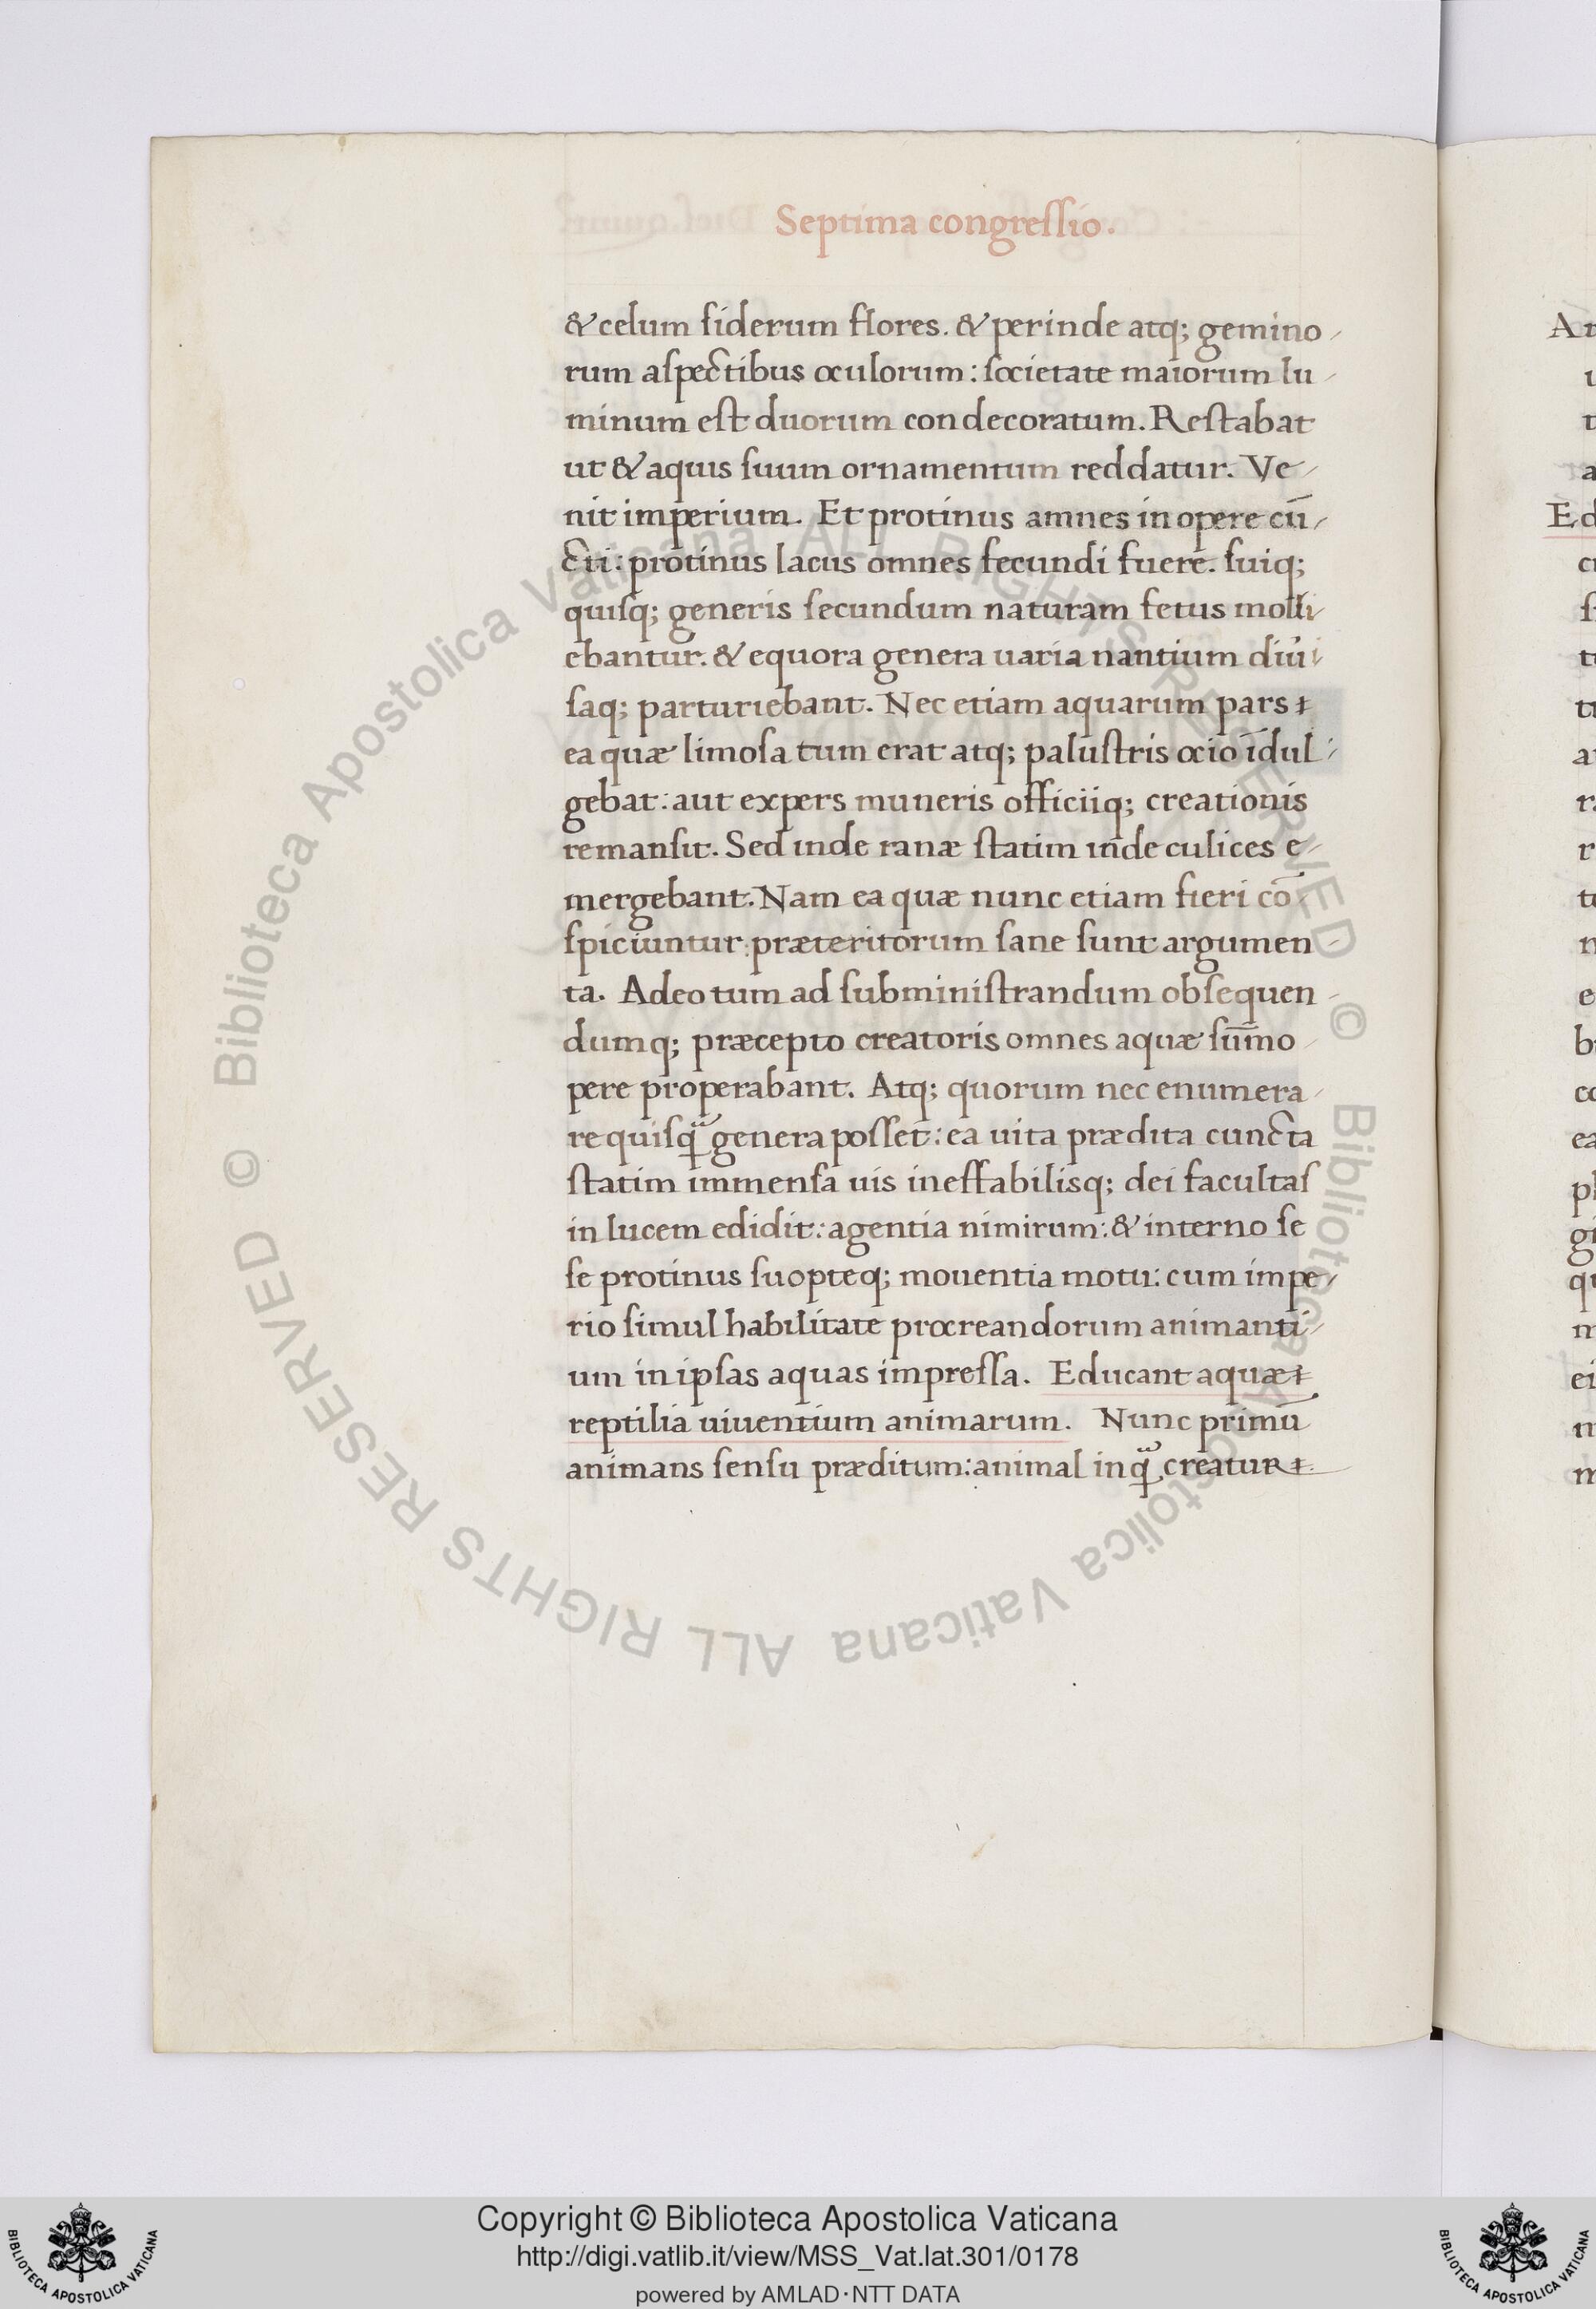 Septima congreſſio.
& celum ſiderum flores. & perinde atq; gemino-
rum aſpectibus oculorum: ſocietate maiorum lu-
minum eſt duorum condecoratum. Reſtabat
ut & aquis ſuum ornamentum reddatur. Ve-
nit imperium. Et protinus amnes in opere cū-
cti: protinus lacus omnes fecundi fuere. ſuiq;
quiſq; generis ſecundum naturam fetus molli-
ebantur. & equora genera uaria nantium diū
ſaq; parturiebant. Nec etiam aquarum pars
ea quæ limoſa tum erat atq; paluſtris ocio īdul-
gebat: aut expers muneris officiiq; creationis
remanſit. Sed inde ranæ ſtatim inde culices e-
mergebant. Nam ea quæ nunc etiam fieri cō-
ſpiciuntur: præteritorum ſane ſunt argumen-
ta. Adeo tum ad ſubminiſtrandum obſequen-
dumq; præcepto creatoris omnes aquæ ſūmo-
pere properabant. Atq; quorum nec enumera-
re quiſq̃ genera poſſet: ea uita prædita cuncta
ſtatim immenſa uis ineffabilisq; dei facultaſ
in lucem edidit: agentia nimirum: & interno ſe
ſe protinus ſuopteq; mouentia motu: cum impe-
rio ſimul habilitate procreandorum animanti-
um in ipſas aquas impreſſa. Educant aquæ
reptilia uiuentium animarum. Nunc primū
animans ſenſu præditum: animal inq̃ creatur
Copyright © Biblioteca Apostolica Vaticana
http://digi.vatlib.it/view/MSS_Vat.lat.301/0178
powered by AMLAD·NTT DATA
BIBLIOTECA APOSTOLICA VATICANA
BIBLIOTECA APOSTOLICA VATICANA
© Biblioteca Apostolica Vaticana ALL RIGHTS RESERVED © Biblioteca Apostolica Vaticana ALL RIGHTS RESERVED